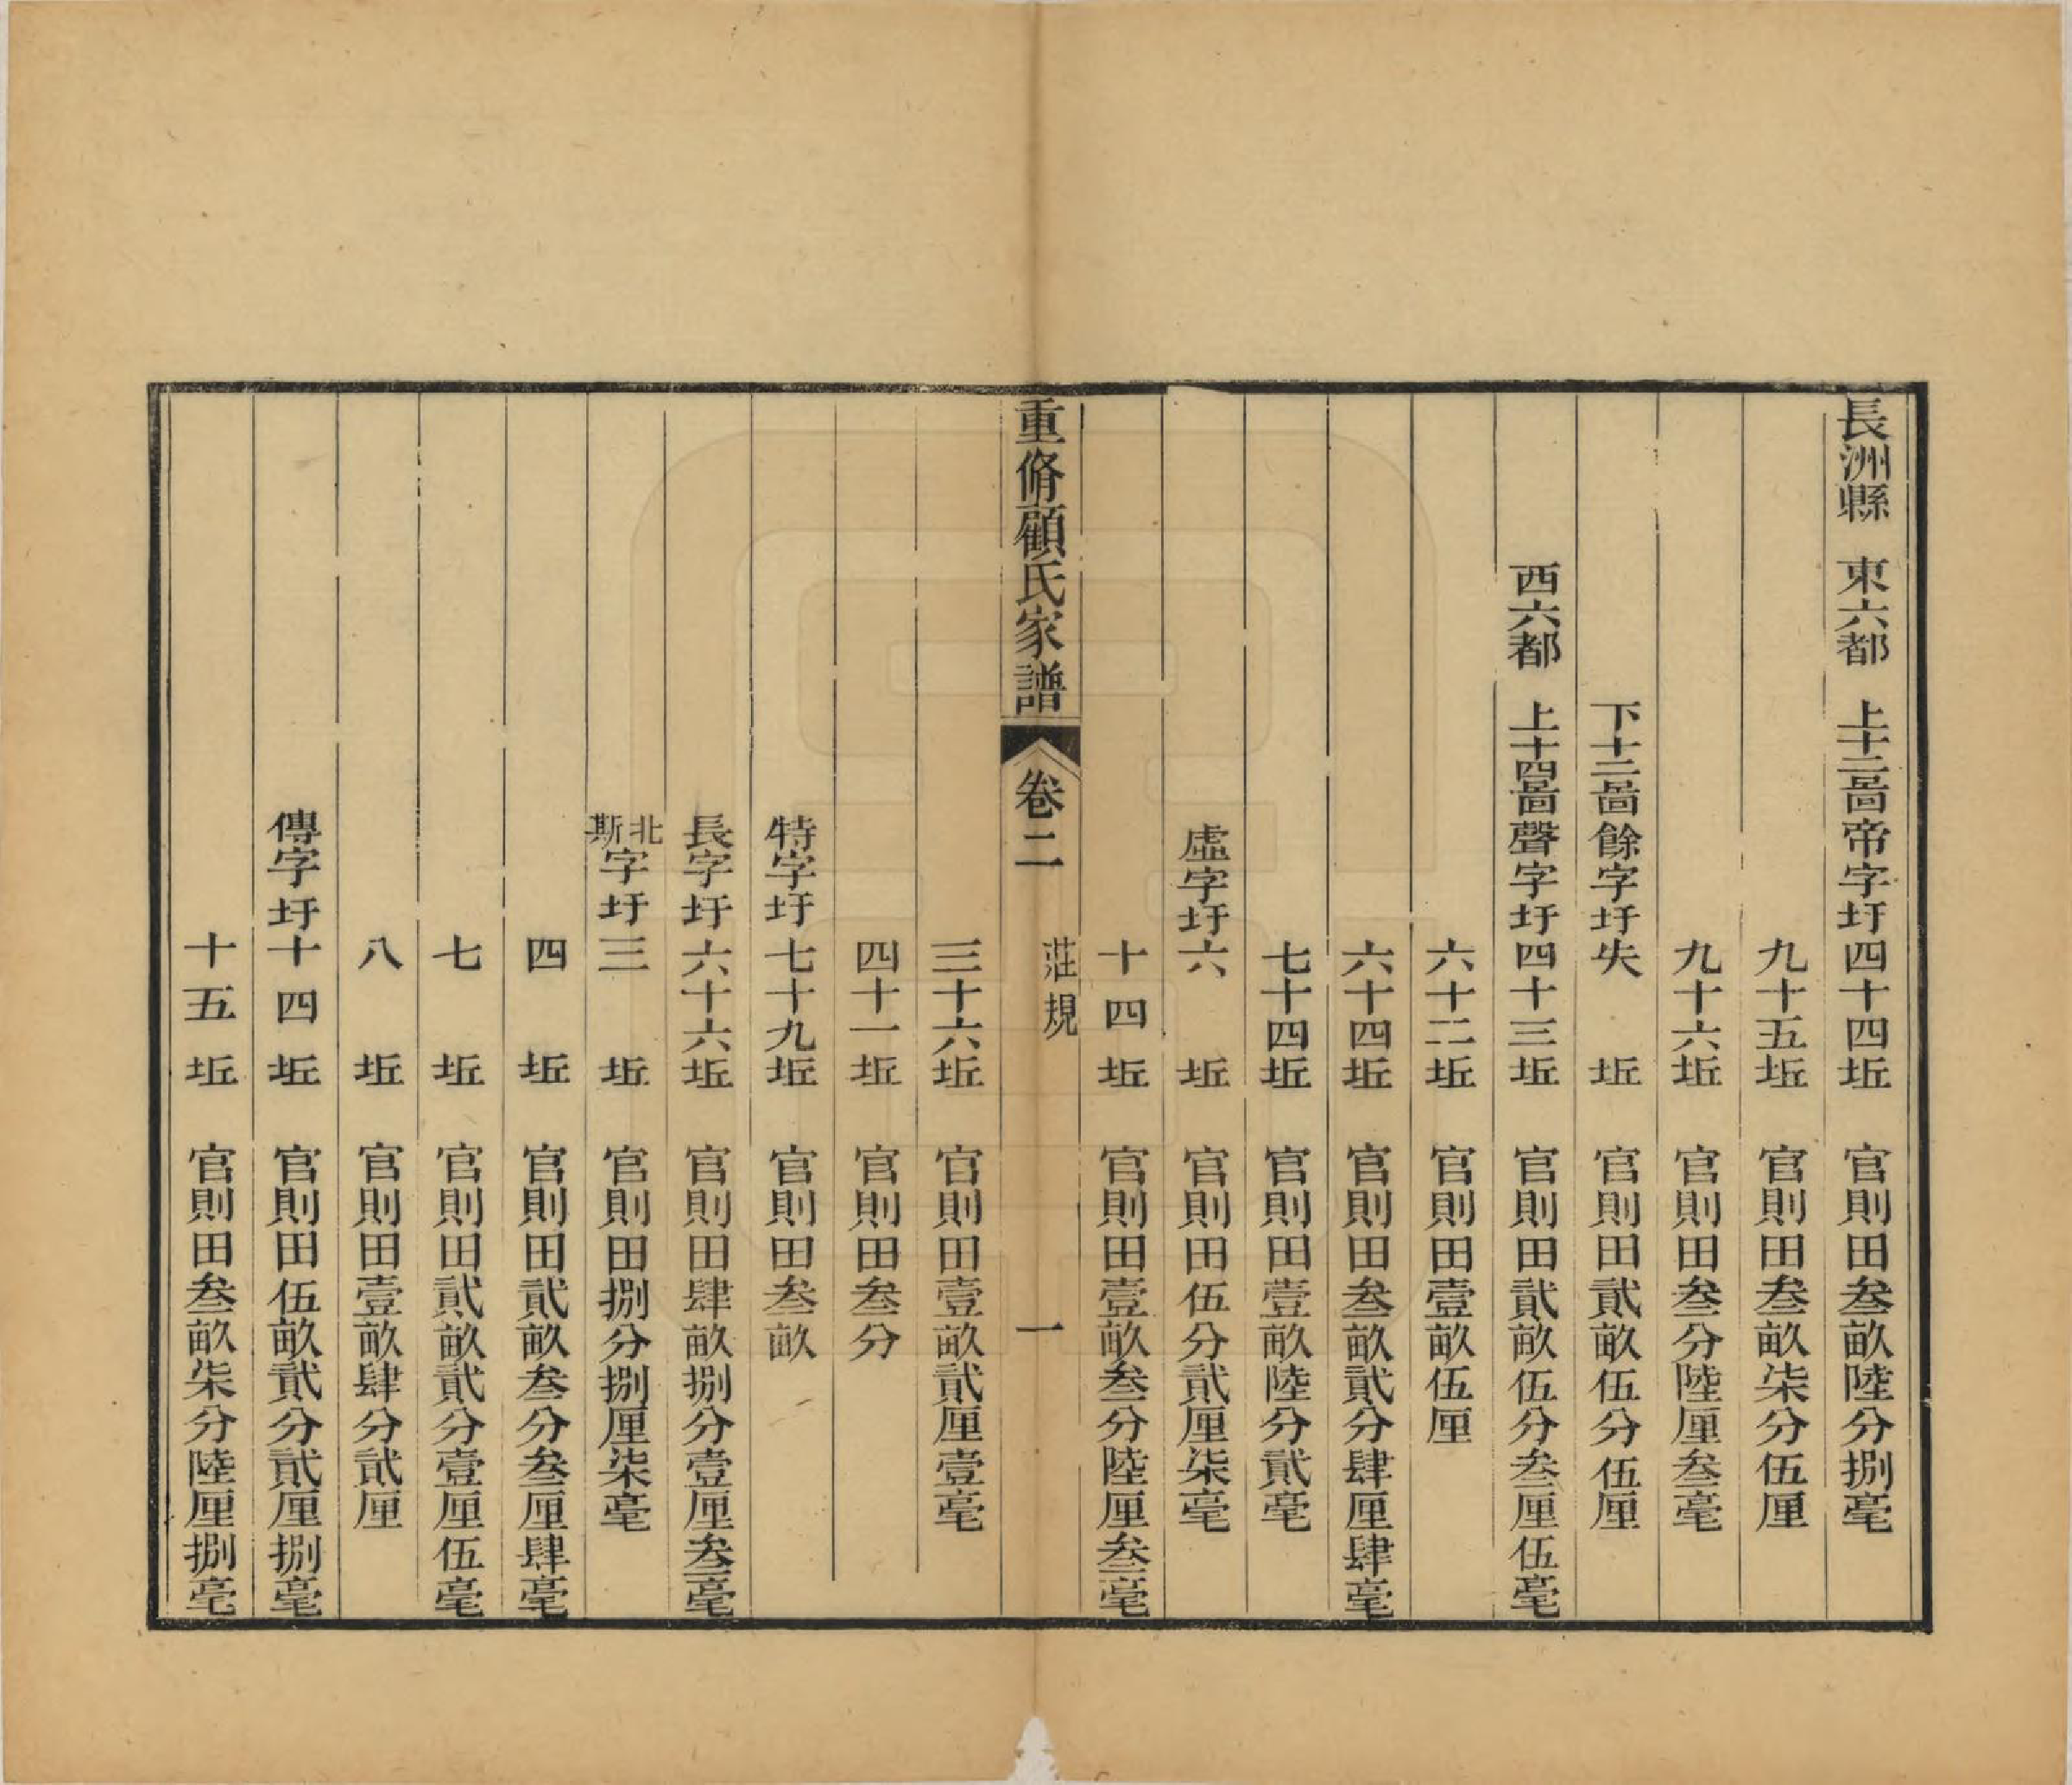 長洲縣 東六都 上十二啚帝字圩四十四坵 官則田叁畝陸分捌毫
九十五坵 官則田叁畝柒分伍厘
九十六坵 官則田叁分陸厘叁毫
下十二啚餘字圩失 坵 官則田貳畝伍分伍厘
西六都 上十四啚聲字圩四十三坵 官則田貳畝伍分叁厘伍毫
六十二坵 官則田壹畝伍厘
六十四坵 官則田叁畝貳分肆厘肆毫
七十四坵 官則田壹畝陸分貳毫
虛字圩六 坵 官則田伍分貳厘柒毫
十四坵 官則田壹畝叁分陸厘叁毫
重脩顧氏家譜 卷二 莊規 一
三十六坵 官則田壹畝貳厘壹毫
四十一坵 官則田叁分
特字圩七十九坵 官則田叁畝
長字圩六十六坵 官則田肆畝捌分壹厘叁毫
北斯字圩三 坵 官則田捌分捌厘柒毫
四 坵 官則田貳畝叁分叁厘肆毫
七 坵 官則田貳畝貳分壹厘伍毫
八 坵 官則田壹畝肆分貳厘
傳字圩十四坵 官則田伍畝貳分貳厘捌毫
十五坵 官則田叁畝柒分陸厘捌毫